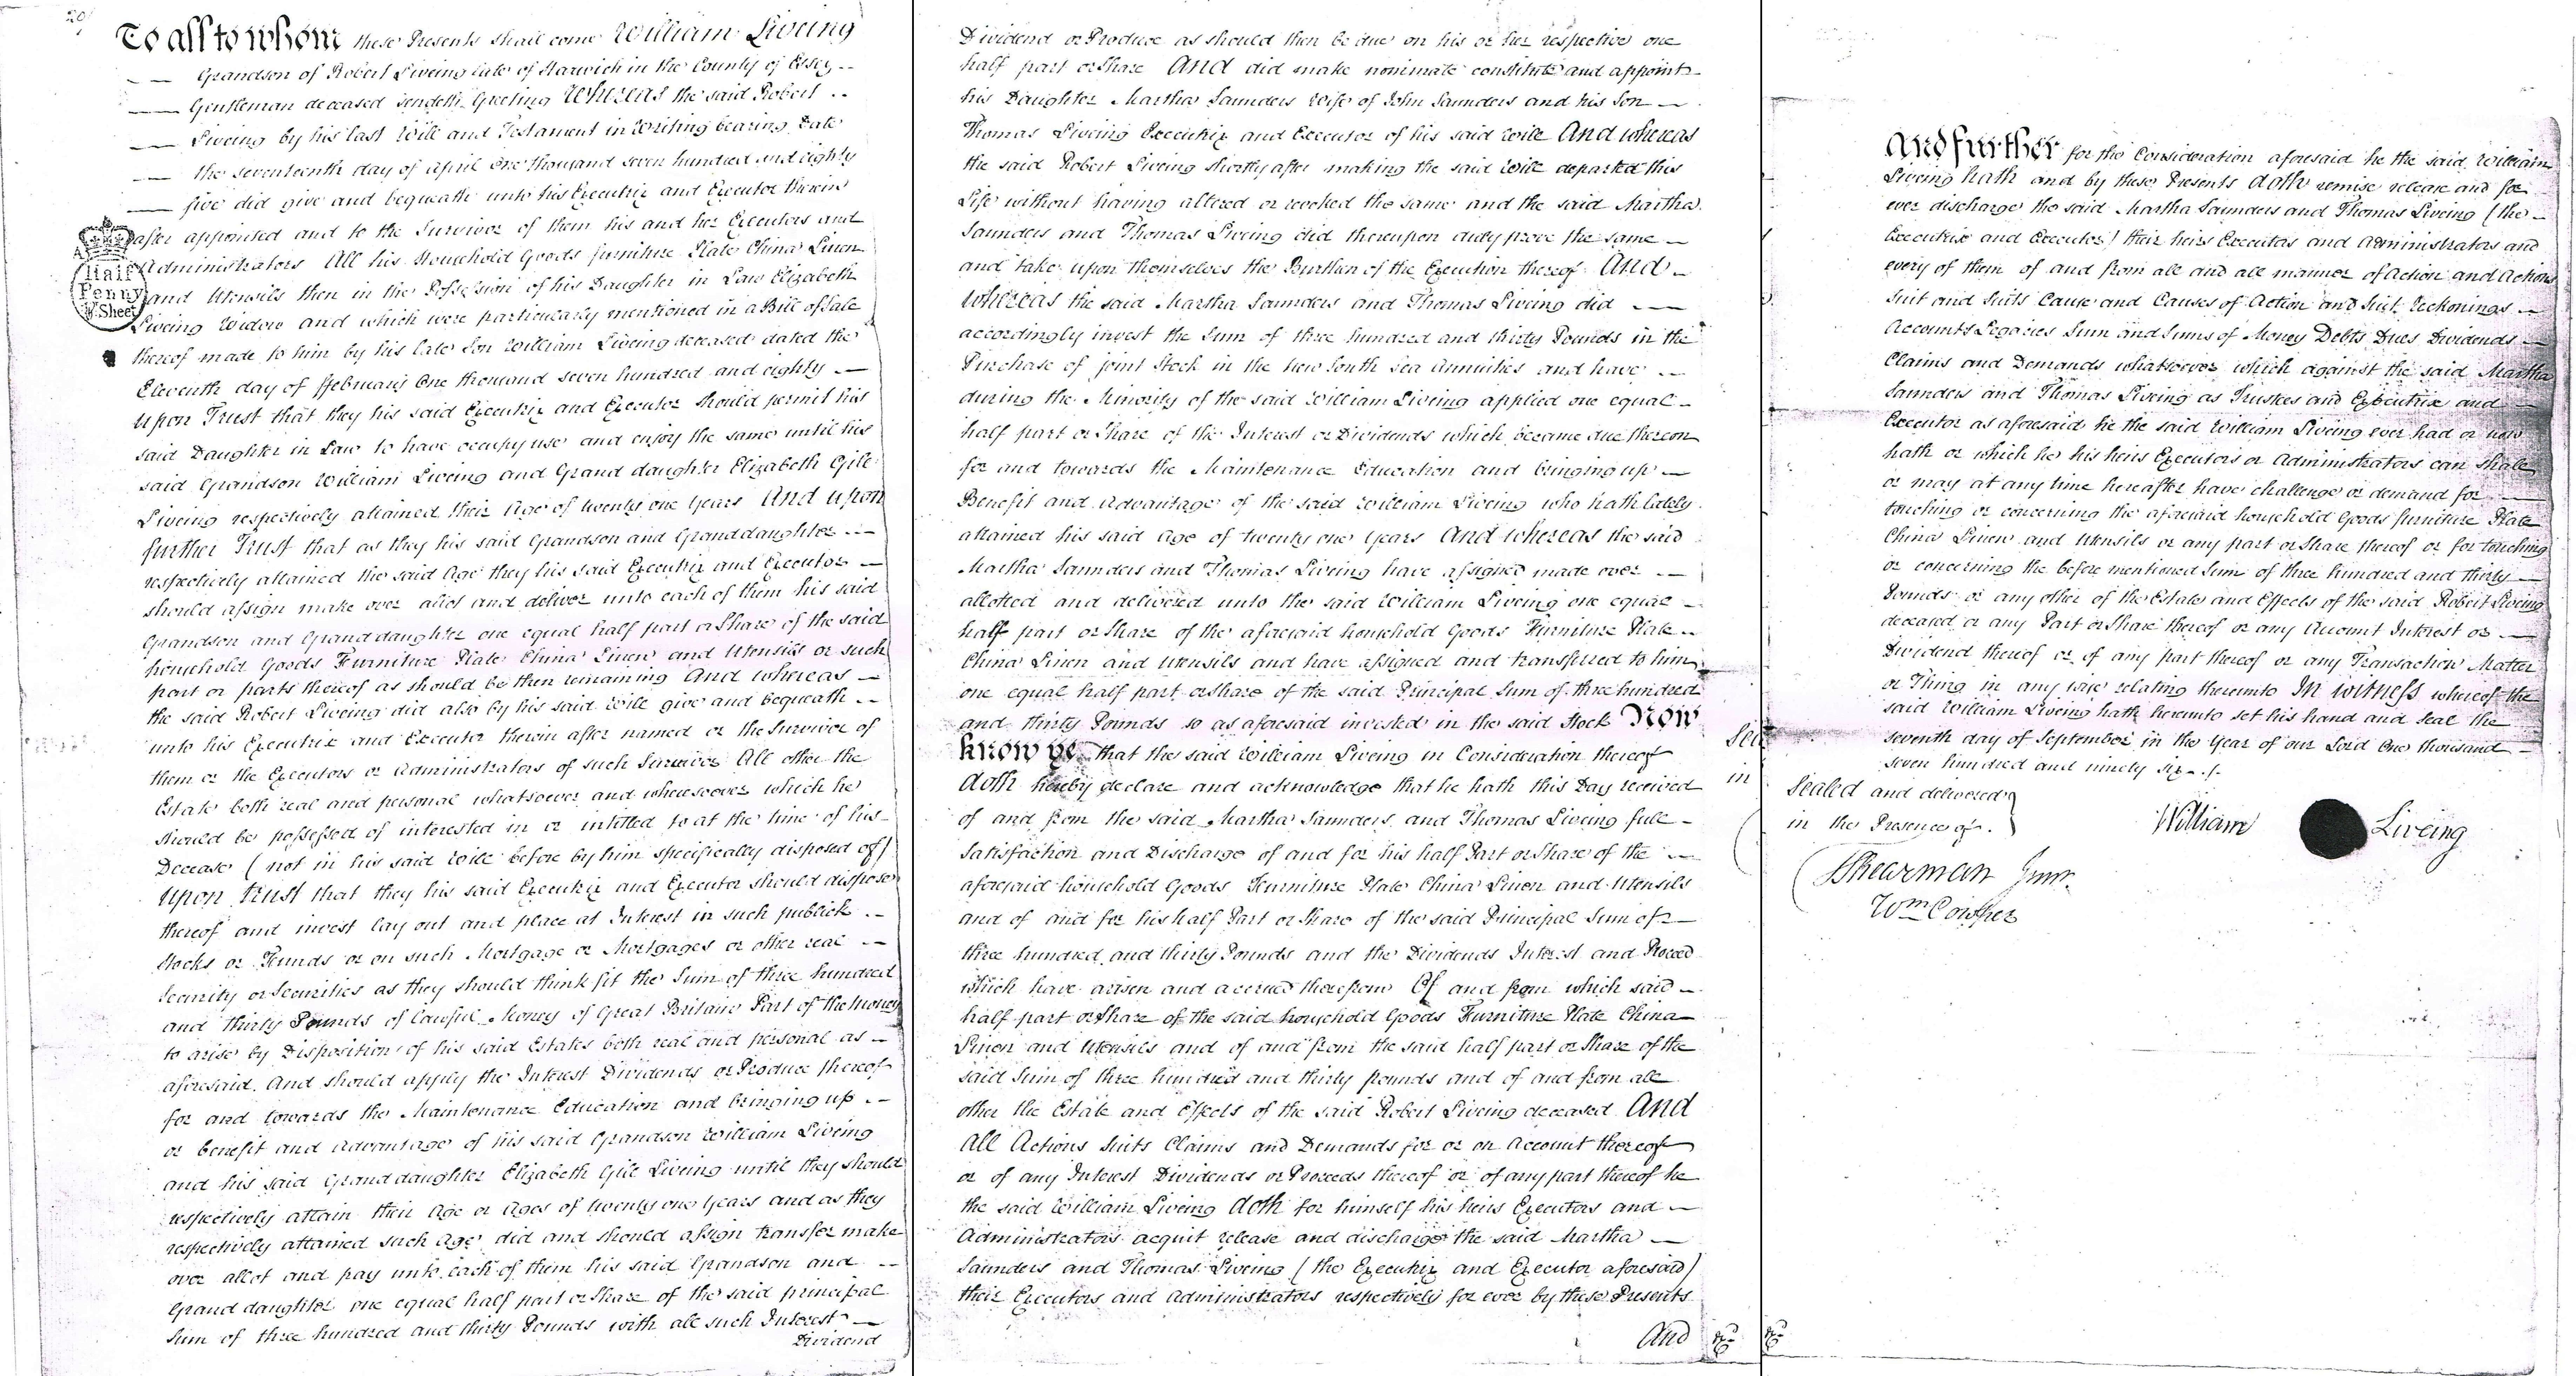 To all to whom these Presents shall come William Liveing
Grandson of Robert Liveing late of Harwich in the County of Essex
Gentleman deceased sendeth Greeting Whereas the said Robert
Liveing by his last Will and Testament in Writing bearing Date
the seventeenth day of April One thousand seven hundred and eighty
five did give and bequeath unto his Executrix and Executor therein
after appointed and to the Survivor of them his and her Executors and
Administrators All his Household Goods furniture Plate China Linen
and Utensils then in the Possession of his Daughter in Law Elizabeth
Liveing Widow and which were particularly mentioned in a Bill of Sale
thereof made to him by his late Son William Liveing deceased dated the
Eleventh day of ffebruary One thousand seven hundred and eighty
Upon Trust that they his said Executrix and Executor should permit his
said Daughter in Law to have occupy use and enjoy the same until his
said Grandson William Liveing and Grand daughter Elizabeth Gill
Liveing respectively attained their Age of twenty one Years And upon
further Trust that as they his said Grandson and Granddaughter
respectively attained the said Age they his said Executrix and Executor
should assign make over allot and deliver unto each of them his said
Grandson and Granddaughter one equal half part or Share of the said
household Goods Furniture Plate China Linen and Utensils or such
part or parts thereof as should be then remaining And whereas
the said Robert Liveing did also by his said Will give and bequeath
unto his Executrix and Executor therein after named or the Survivor of
them or the Executors or Administrators of such Survivor All other the
Estate both real and personal whatsoever and wheresoever which he
should be possessed of interested in or intitled to at the time of his
Decease (not in his said Will before by him specifically disposed of)
Upon Trust that they his said Executrix and Executor should dispose
thereof and invest lay out and place at Interest in such publick
Stocks or Funds or on such Mortgage or Mortgages or other real
Security or Securities as they should think fit the Sum of three hundred
and thirty Pounds of lawful Money of Great Britain Part of the Money
to arise by Disposition of his said Estates both real and personal as
aforesaid. And should apply the Interest Dividends or Produce thereof
for and towards the Maintenance Education and bringing up
or benefit and advantage of his said Grandson William Liveing
and his said Granddaughter Elizabeth Gill Liveing until they should
respectively attain their Age or Ages of twenty one Years and as they
respectively attained such Age did and should assign transfer make
over allot and pay unto each of them his said Grandson and
Grand daughter one equal half part or Share of the said principal
Sum of three hundred and thirty Pounds with all such Interest
Dividend
Half
Penny
Sheet
Dividend or Produce as should then be due on his or her respective one
half part or Share And did make nominate constitute and appoint
his Daughter Martha Saunders Wife of John Saunders and his Son
Thomas Liveing Executrix and Executor of his said Will And whereas
the said Robert Liveing shortly after making the said Will departed this
Life without having altered or revoked the same and the said Martha
Saunders and Thomas Liveing did thereupon duly prove the same
and take upon themselves the Burthen of the Execution thereof And
Whereas the said Martha Saunders and Thomas Liveing did
accordingly invest the Sum of three hundred and thirty Pounds in the
Purchase of joint Stock in the new South Sea Annuities and have
during the Minority of the said William Liveing applied one equal
half part or Share of the Interest or Dividends which became due thereon
for and towards the Maintenance Education and bringing up
Benefit and Advantage of the said William Liveing who hath lately
attained his said Age of twenty one Years And whereas the said
Martha Saunders and Thomas Liveing have assigned made over
allotted and delivered unto the said William Liveing one equal
half part or Share of the aforesaid household Goods Furniture Plate
China Linen and Utensils and have assigned and transferred to him
one equal half part or Share of the said Principal Sum of three hundred
and thirty Pounds so as aforesaid invested in the said Stock Now
know ye that the said William Liveing in Consideration thereof
doth hereby declare and acknowledge that he hath this Day received
of and from the said Martha Saunders and Thomas Liveing full
Satisfaction and Discharge of and for his half Part or Share of the
aforesaid household Goods Furniture Plate China Linen and Utensils
and of and for his half Part or Share of the said Principal Sum of
three hundred and thirty Pounds and the Dividends Interest and Proceed
which have arisen and accrued therefrom Of and from which said
half part or Share of the said household Goods Furniture Plate China
Linen and Utensils and of and from the said half part or Share of the
said Sum of three hundred and thirty pounds and of and from all
other the Estate and Effects of the said Robert Liveing deceased And
All Actions Suits Claims and Demands for or on Account thereof
or of any Interest Dividends or Proceeds thereof or of any part thereof he
the said William Liveing doth for himself his heirs Executors and
Administrators acquit release and discharge the said Martha
Saunders and Thomas Liveing (the Executrix and Executor aforesaid)
their Executors and Administrators respectively for ever by these Presents
And
And further for the Consideration aforesaid he the said William
Liveing hath and by these Presents doth remise release and for
ever discharge the said Martha Saunders and Thomas Liveing (the
Executrix and Executor) their heirs Executors and Administrators and
every of them of and from all and all manner of Action and Actions
Suit and Suits Cause and Causes of Action and Suit Reckonings
Accounts Legacies Sum and Sums of Money Debts Dues Dividends
Claims and Demands whatsoever which against the said Martha
Saunders and Thomas Liveing as Trustees and Executrix and
Executor as aforesaid he the said William Liveing ever had or now
hath or which he his heirs Executors or Administrators can shall
or may at any time hereafter have challenge or demand for
touching or concerning the aforesaid household Goods furniture Plate
China Linen and Utensils or any part or Share thereof or for touching
or concerning the before mentioned Sum of three hundred and thirty
Pounds or any other of the Estate and Effects of the said Robert Liveing
deceased or any Part or Share thereof or any Account Interest or
Dividend thereof or of any part thereof or any Transaction Matter
or Thing in any wise relating thereunto In witness whereof the
said William Liveing hath hereunto set his hand and Seal the
seventh day of September in the Year of our Lord One thousand
seven hundred and ninety six
Sealed and delivered
in the Presence of
William Liveing
Shearman Junr.
Wm Cowper